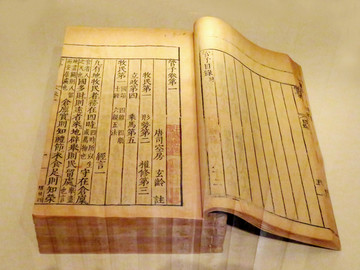 管子卷第一
唐司空房 玄齡 註
牧民第一
形勢第二
權修第三
立政第四
乘馬第五
牧民第一
經言一
凡有地牧民者務在四時
守在倉廩
國多財則遠者來地辟舉則民留處
倉廩實則知禮節衣食足則知榮
管子目錄